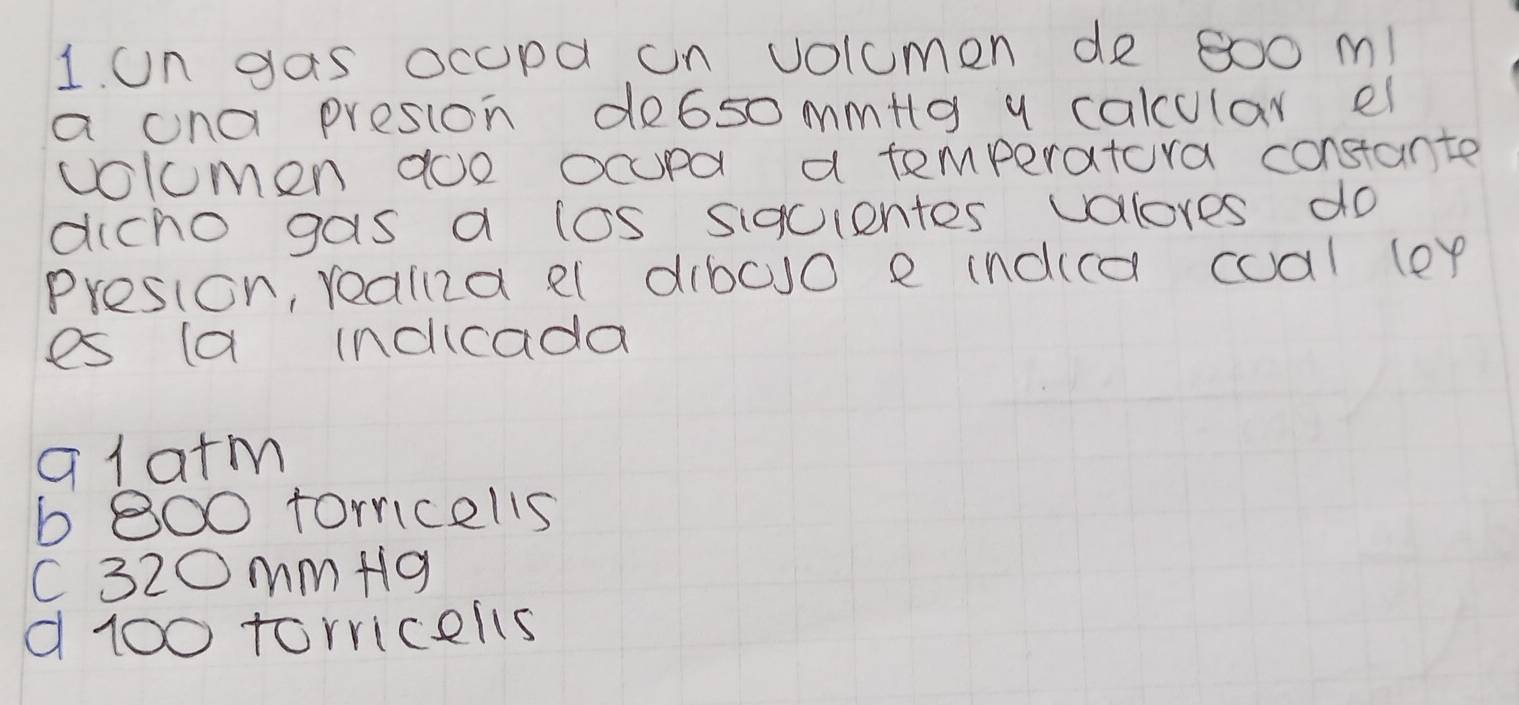 1. Un gas ocupa un volumen de 800 ml
a una presión de 650 mmHg y calcular el
volumen que ocupa a temperatura constante
dicho gas a los siguientes valores de
presion, realiza el dibujo e indica cual ley
es la indicada
a 1 atm
b 800 torricelis
c 320 mm Hg
d 100 torricelis